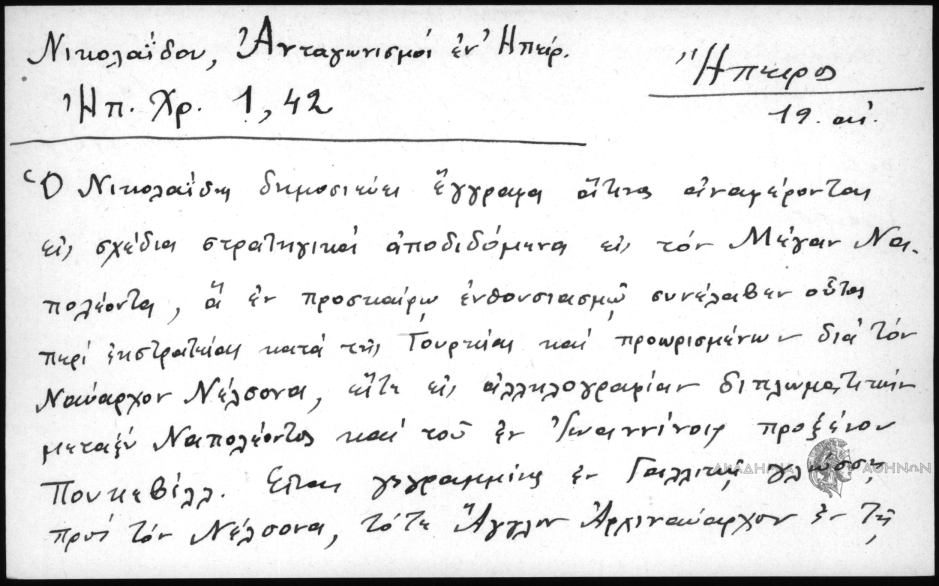 Νικολαΐδου, Ἀνταγωνισμοί ἐν Ἠπείρ.
Ἠπ. Χρ. 1, 42
Ἤπειρος
19. αἰ.
Ὁ Νικολαΐδης δημοσιεύει ἔγγραφα ἅτινα ἀναφέρονται
εἰς σχέδια στρατηγικά ἀποδιδόμενα εἰς τόν Μέγαν Να-
πολέοντα, ἅ ἐν προσκαίρῳ ἐνθουσιασμῷ συνέλαβεν οὗτος
περί ἐκστρατείας κατά τῆς Τουρκίας καί προωρισμένων διά τόν
Ναύαρχον Νέλσονα, εἴτε εἰς ἀλληλογραφίαν διπλωματικήν
μεταξύ Ναπολέοντος καί τοῦ ἐν Ἰωαννίνοις προξένου
Πουκεβίλλ. Εἶναι γεγραμμένης ἐν Γαλλικῇ γλώσσῃ
πρός τόν Νέλσονα, τότε Ἄγγλον Ἀρχιναύαρχον ἐν τῇ
ΑΚΑΔΗΜΙΑ ΑΘΗΝΩΝ